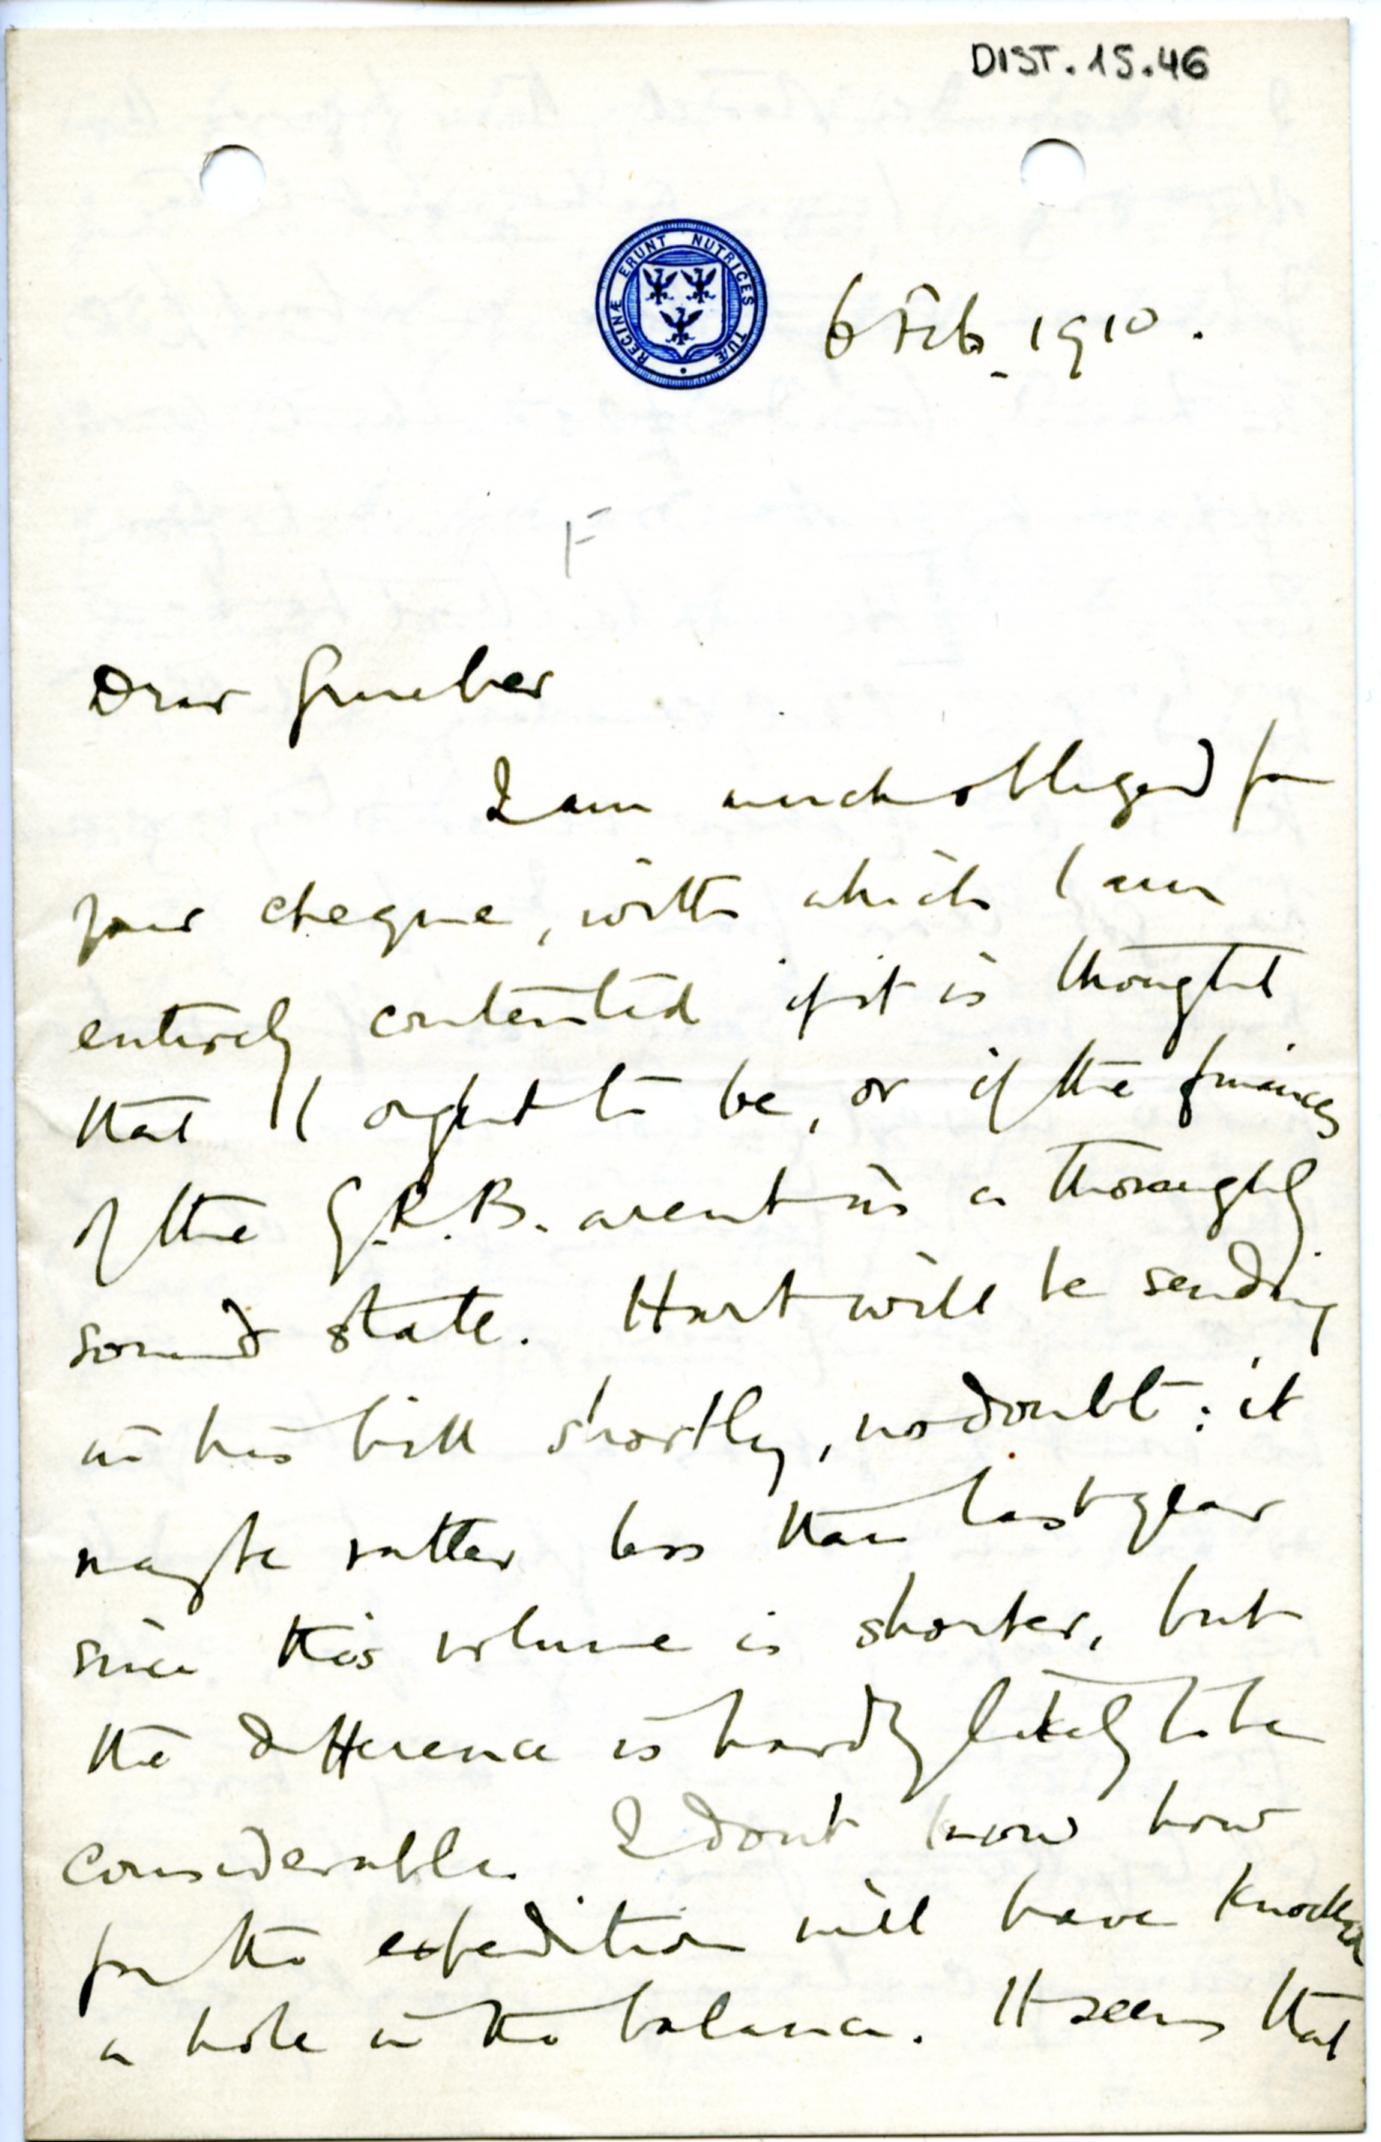 DIST.15.46
REGINÆ ERUNT NUTRICES TUÆ
6 Feb. 1910.
F
Dear Grueber
I am much obliged for
your cheque, with which I am
entirely contented if it is thought
that I ought to be, or if the finances
of the G.R.B. arent in a thoroughly
sound state. Hart will be sending
in his bill shortly, no doubt: it
may be rather less than last year
since this volume is shorter, but
the difference is hardly likely to be
considerable. I dont know how
far the expedition will have knocked
a hole in the balance. It seems that